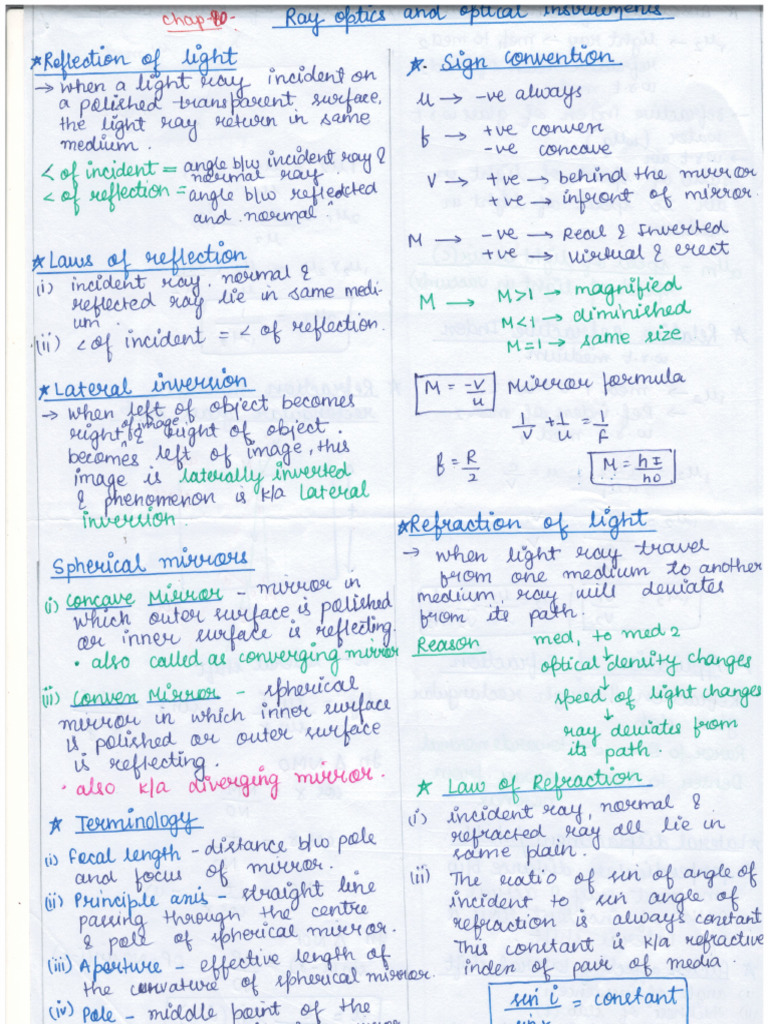 Chap-10-
Ray optics and optical instruments
★Reflection of light
→ when a light ray incident on
a polished transparent surface,
the light ray return in same
medium.
< of incident = angle b/w incident ray &
normal ray
< of reflection = angle b/w reflected
and normal "
★Laws of reflection
(i) incident ray, normal &
reflected ray lie in same medi-
um.
(ii) < of incident = < of reflection.
★Lateral inversion
→ when left of object becomes
right of image, & right of object
becomes left of image, this
image is laterally inverted
& phenomenon is k/a lateral
inversion.
Spherical mirrors
(i) Concave Mirror - mirror in
which outer surface is polished
or inner surface is reflecting.
• also called as converging mirror
(ii) Convex Mirror - spherical
mirror in which inner surface
is polished or outer surface
is reflecting.
• also k/a diverging mirror.
★ Terminology
(i) Focal length - distance b/w pole
and focus of mirror.
(ii) Principle axis - straight line
passing through the centre
& pole of spherical mirror.
(iii) Aperture - effective length of
the curvature of spherical mirror.
(iv) Pole - middle point of the
★. Sign convention
u → -ve always
f → +ve convex
-ve concave
V → +ve → behind the mirror
+ve → infront of mirror.
M → -ve → Real & Inverted
+ve → virtual & erect
M → M>1 → magnified
M<1 → diminished
M=1 → same size
M = -V/u Mirror formula
1/V + 1/u = 1/f
f = R/2 M = hI/hO
★Refraction of light
→ when light ray travel
from one medium to another
medium, ray will deviates
from its path.
Reason med, to med 2
↓
optical density changes
↓
speed of light changes
↓
ray deviates from
its path.
★ Law of Refraction
(i) incident ray, normal &
refracted ray all lie in
same plain.
(ii) The ratio of sin of angle of
incident to sin angle of
refraction is always constant
This constant is k/a refractive
index of pair of media.
sin i = constant